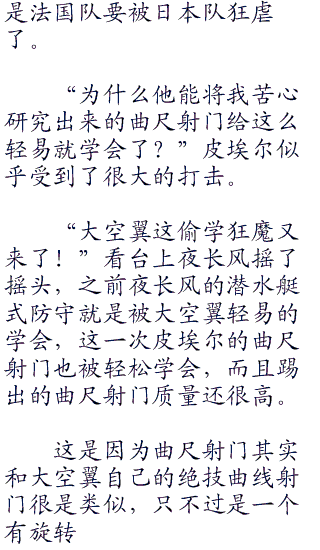 是法国队要被日本队狂虐
了。
“为什么他能将我苦心
研究出来的曲尺射门给这么
轻易就学会了？”皮埃尔似
乎受到了很大的打击。
“大空翼这偷学狂魔又
来了！”看台上夜长风摇了
摇头，之前夜长风的潜水艇
式防守就是被大空翼轻易的
学会，这一次皮埃尔的曲尺
射门也被轻松学会，而且踢
出的曲尺射门质量还很高。
这是因为曲尺射门其实
和大空翼自己的绝技曲线射
门很是类似，只不过是一个
有旋转